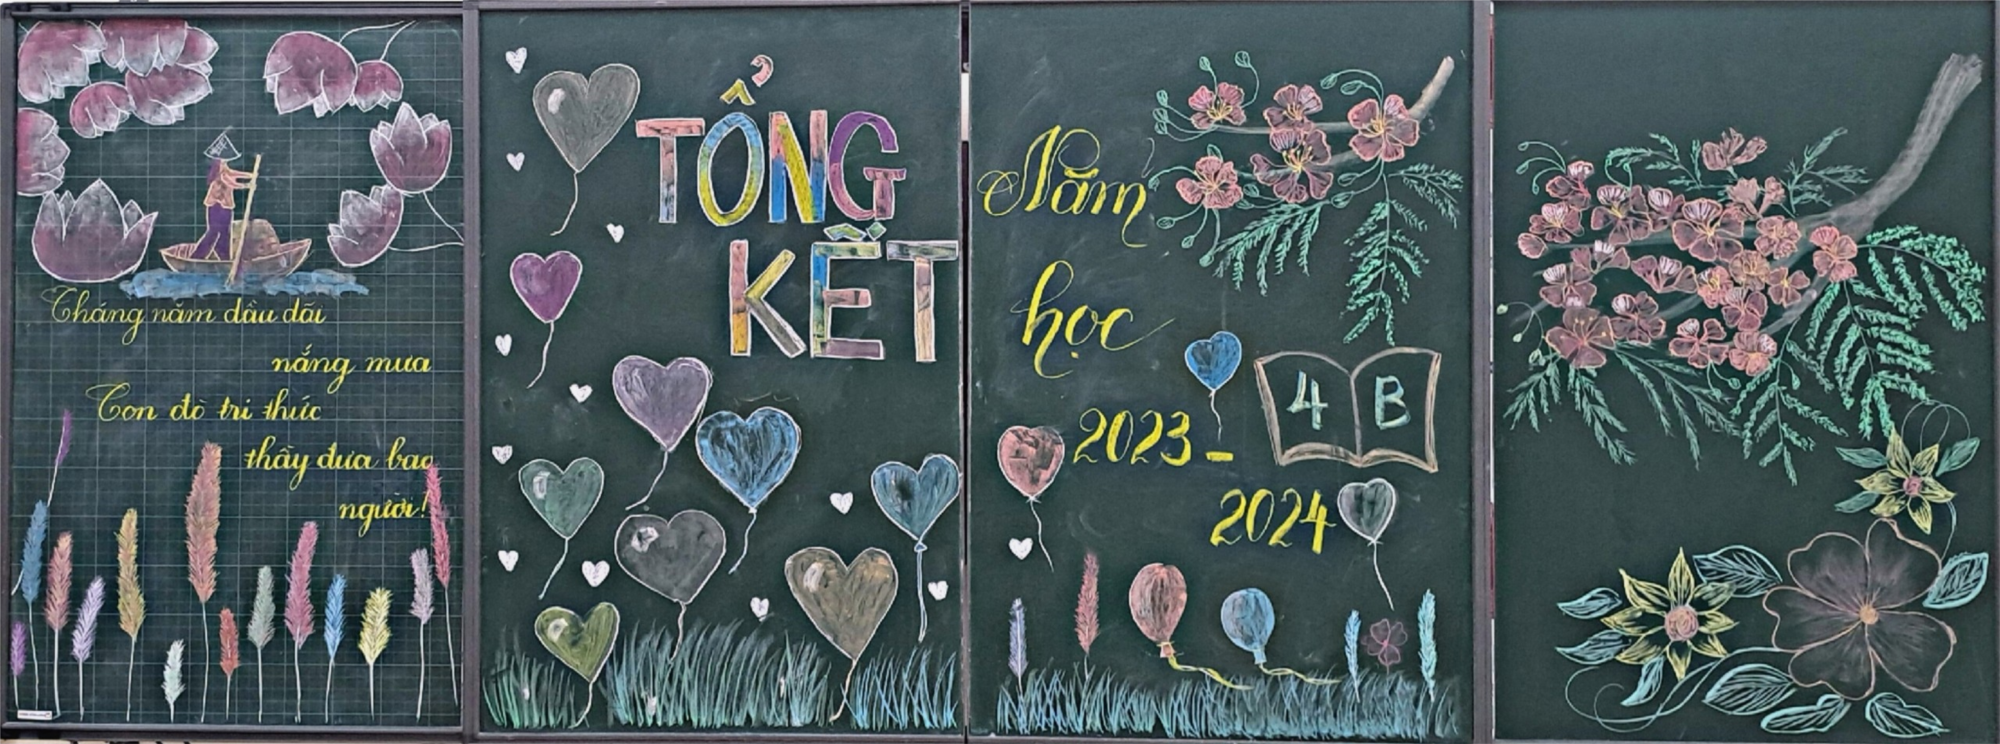 Tháng năm dầu dãi
nắng mưa
Con đò tri thức
thầy đưa bao
người!
TỔNG
KẾT
Năm
học
2023-
2024
4 B